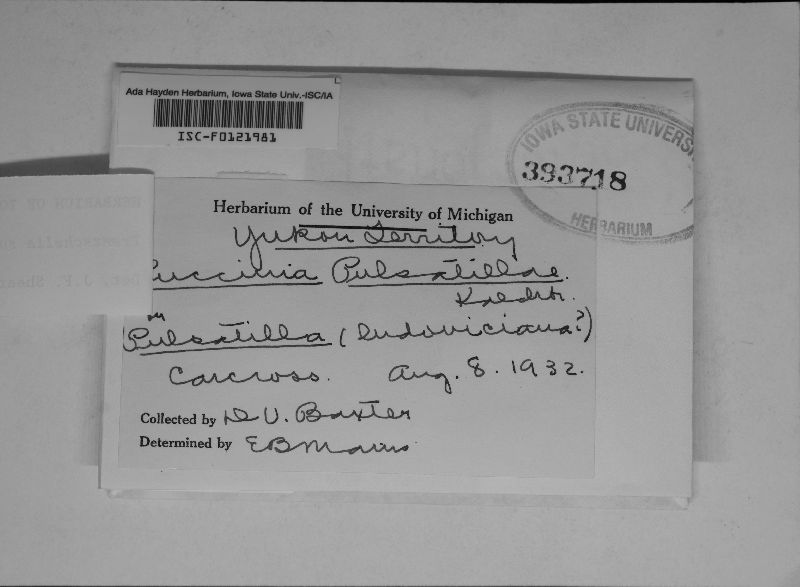 Ada Hayden Herbarium, Iowa State Univ.-ISC/IA
ISC-F0121981
IOWA STATE UNIVERSI
393718
HERBARIUM
Herbarium of the University of Michigan
Yukon Territory
uccinia Pulsatillae.
Kalchbr.
on
Pulsatilla (ludoviciana?)
Carcross. Aug. 8. 1932.
Collected by D V. Baxter
Determined by E B Mains
HERBARIUM OF
Det. J.F. Shea